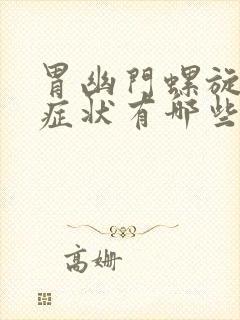 胃幽門螺旋
症状有哪些
高姗